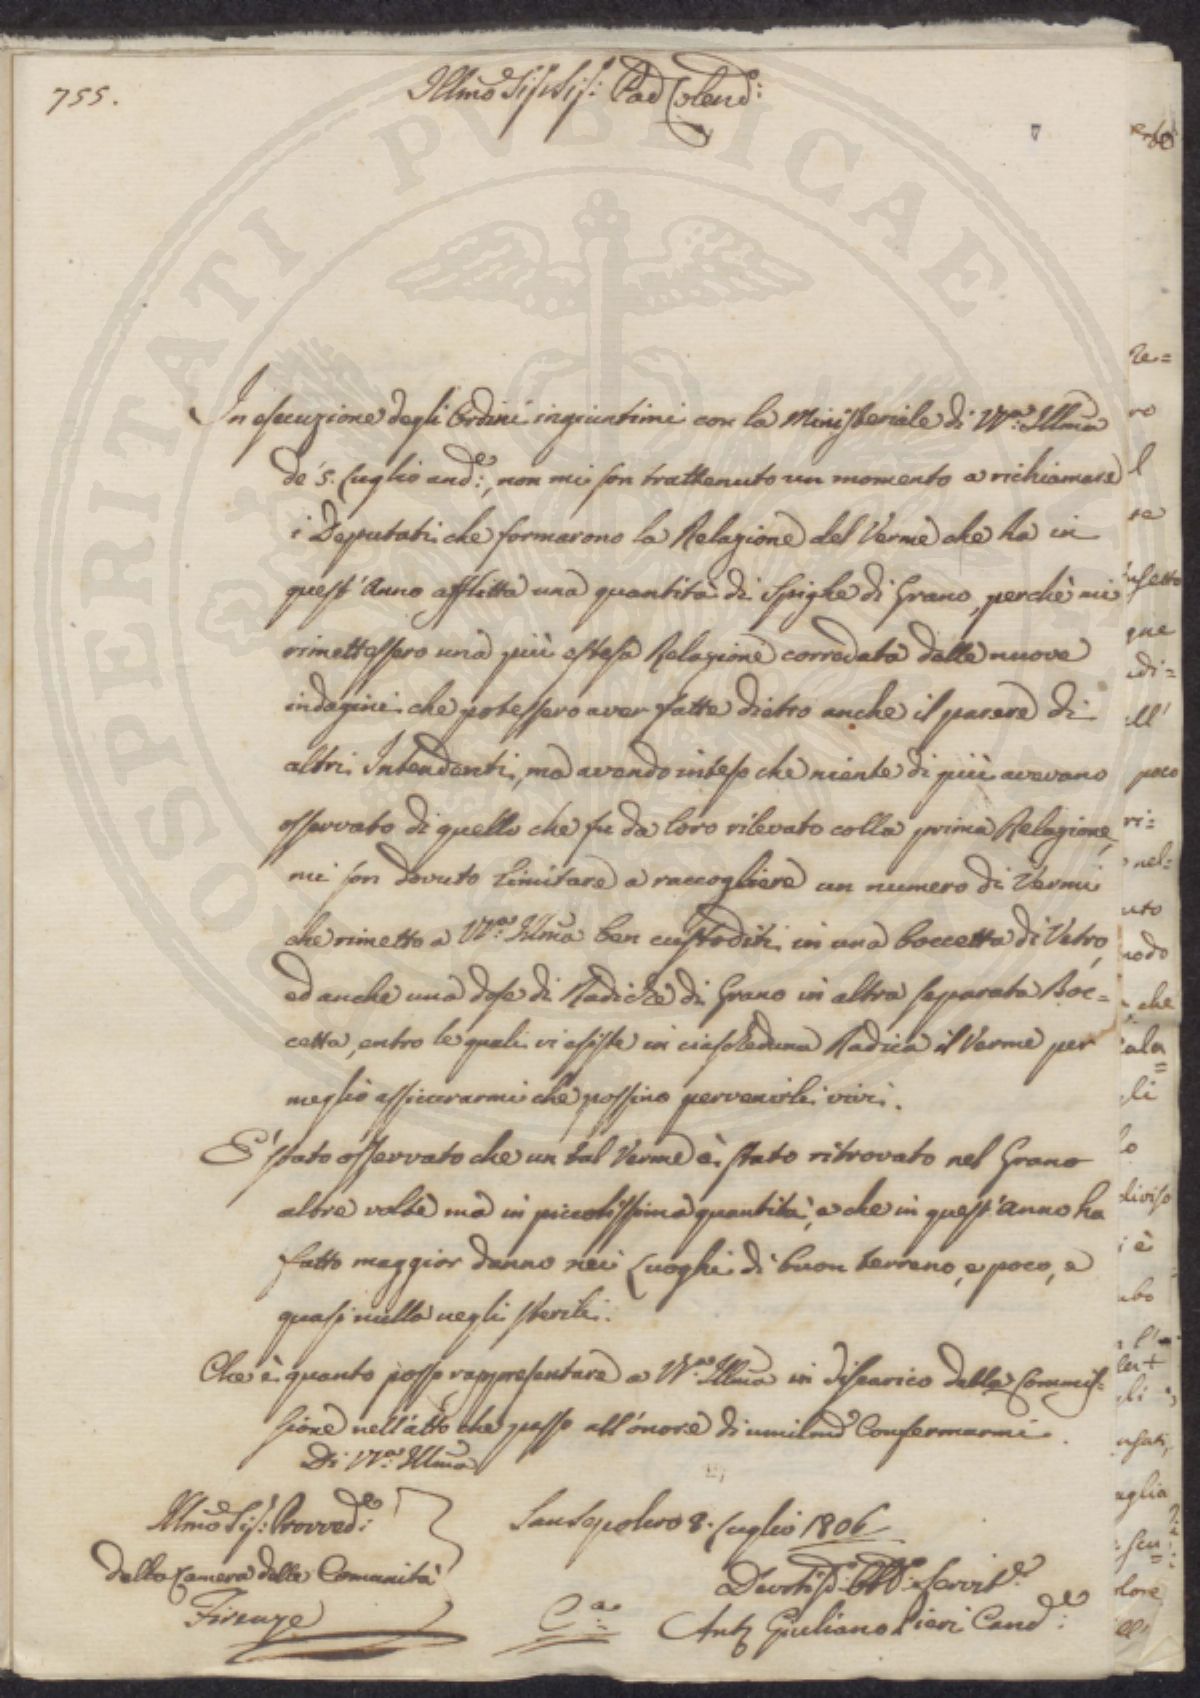 755.
Illmo Sig. Sig. Pad Colend:
In esecuzione degli Ordini ingiuntimi con la Ministeriale di V.a Illma
de' 5. Luglio and:e, non mi son trattenuto un momento a richiamare
i Deputati che formarono la Relazione del Verme che ha in
quest'Anno afflitta una quantità di Spighe di Grano, perchè mi
rimettessero una più estesa Relazione corredata delle nuove
indagini che potessero aver fatte dietro anche il parere di
altri Intendenti, ma avendo inteso che niente di più avevano
osservato di quello che fu da loro rilevato colla prima Relazione,
mi son dovuto limitare a raccogliere un numero di Vermi
che rimetto a V.a Illma ben custoditi in una boccetta di Vetro,
ed anche una dose di Radiche di Grano in altra separata Boc=
cetta, entro le quali vi esiste in ciascheduna Radica il Verme per
meglio assicurarmi che possino pervenirle vivi.
E' stato osservato che un tal Verme è stato ritrovato nel Grano
altre volte ma in piccolissima quantità, e che in quest'Anno ha
fatto maggior danno nei Luoghi di buon terreno, e poco, e
quasi nulla negli sterili.
Che è quanto posso rappresentare a V.a Illma in discarico della Commis=
sione nell'atto che passo all'onore di umilmd Confermarmi.
Di V.a Illma
Illmo Sig: Provved:e
della Camera delle Comunità
Firenze
San Sepolcro 8. Luglio 1806
Devotis: Obb: Servit:e
C.a Ant Giuliano Pieri Canc:e
SPERITATI PUBLICAE